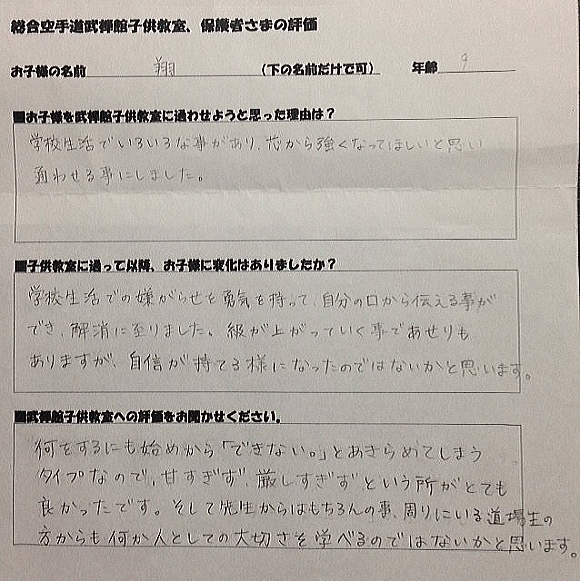 総合空手道武禅館子供教室、保護者さまの評価
お子様の名前 翔 （下の名前だけで可） 年齢 9
■お子様を武禅館子供教室に通わせようと思った理由は？
学校生活でいろいろな事があり、芯から強くなってほしいと思い
通わせる事にしました。
■子供教室に通って以降、お子様に変化はありましたか？
学校生活での嫌がらせを勇気を持って、自分の口から伝える事が
でき、解消に至りました。級が上がっていく事であせりも
ありますが、自信が持てる様になったのではないかと思います。
■武禅館子供教室への評価をお聞かせください。
何をするにも始めから「できない。」とあきらめてしまう
タイプなので、甘すぎず、厳しすぎずという所がとても
良かったです。そして先生からはもちろんの事、周りにいる道場生の
方からも何か人としての大切さを学べるのではないかと思います。